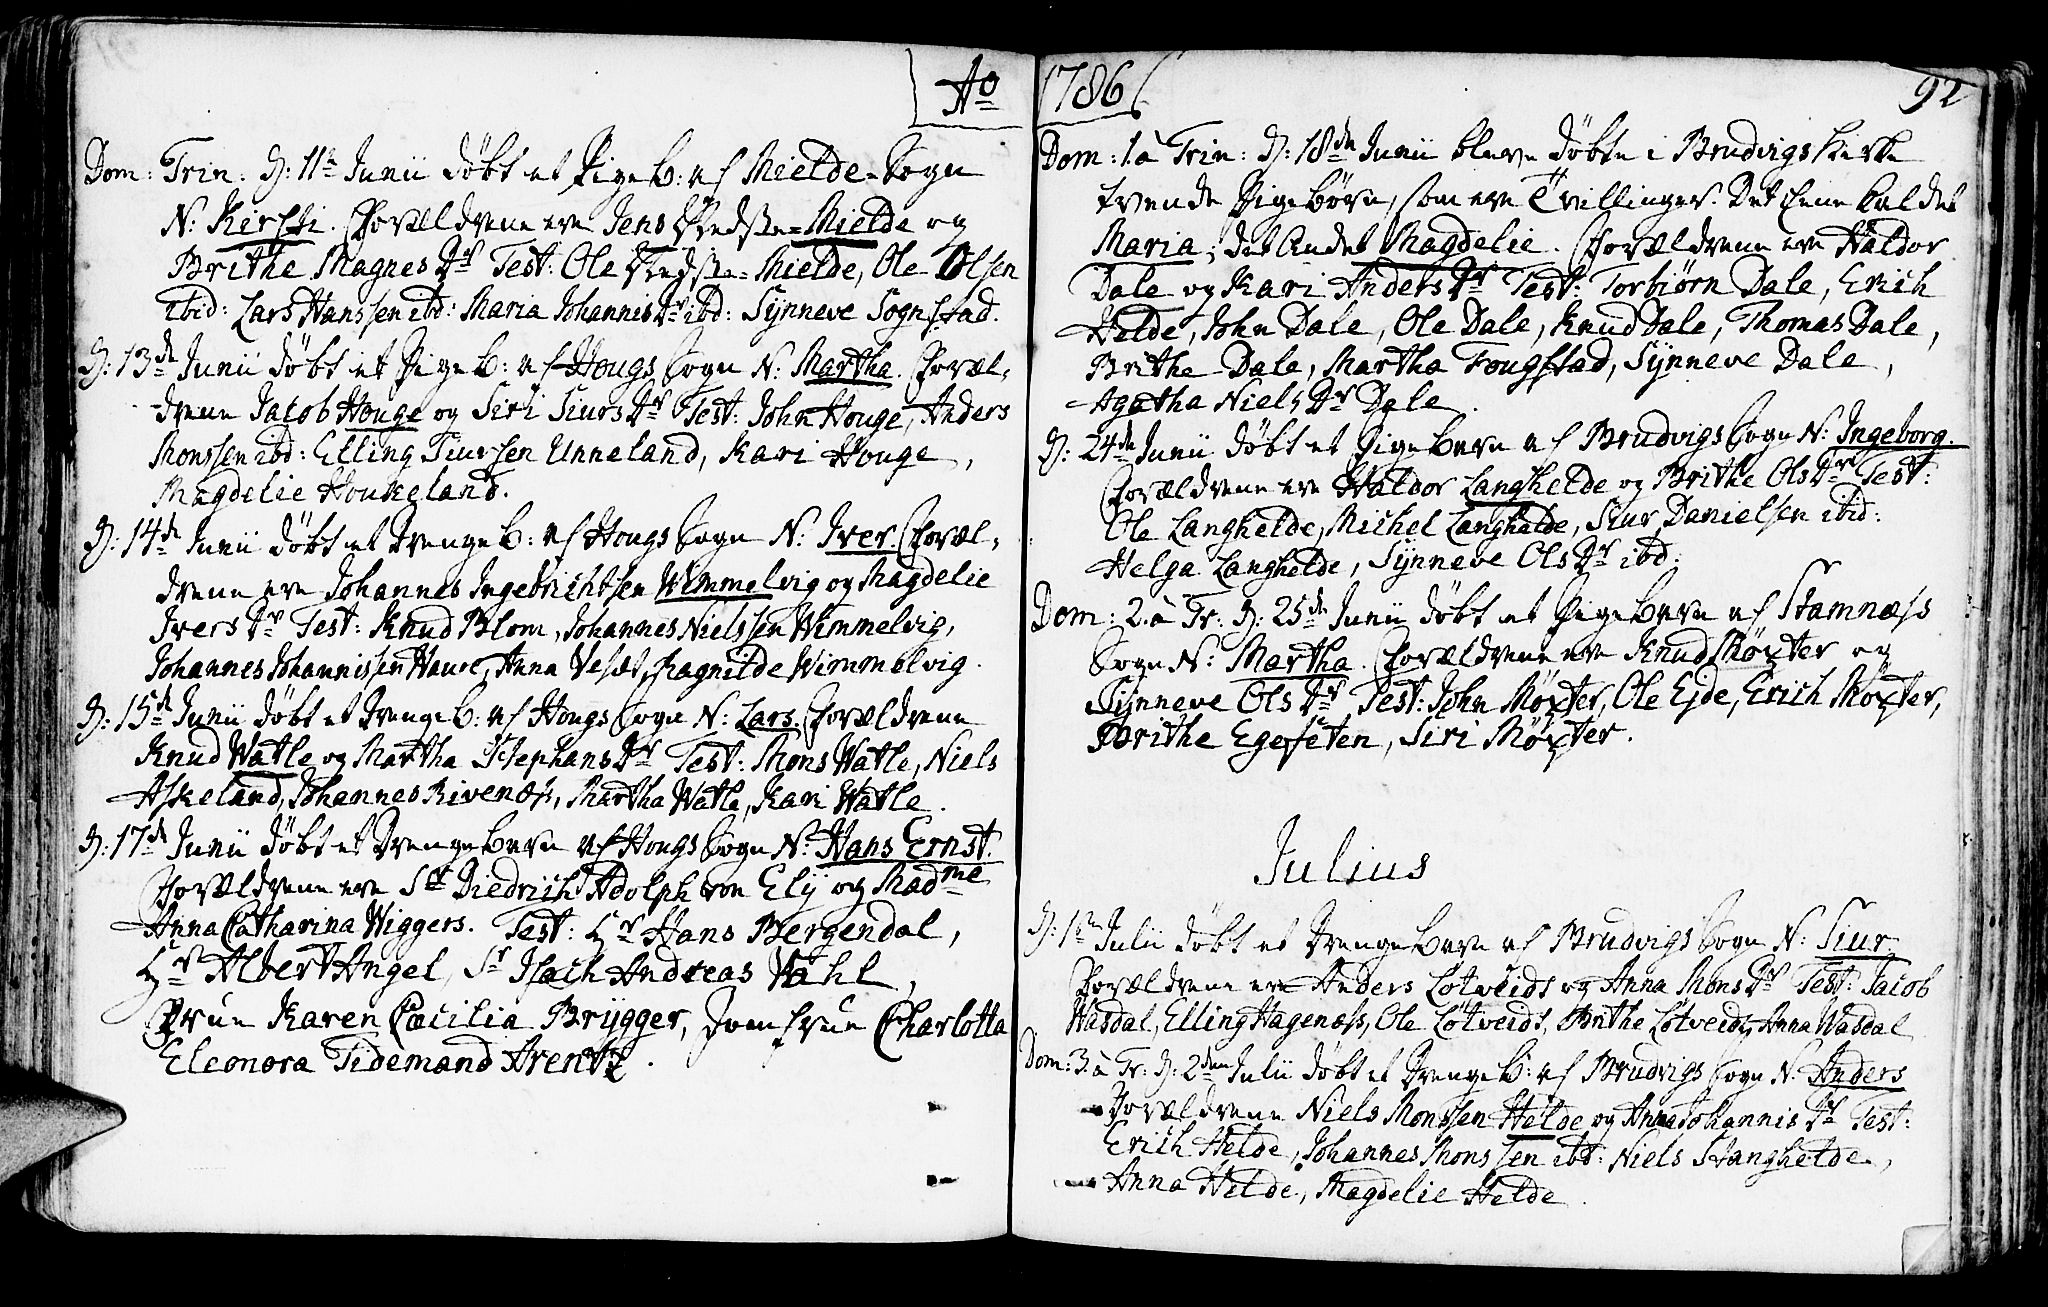 Ao
Dom: Trin: D: 11te Junii døbt et Pigeb: af Mielde-Sogn
N: Kirsti. Forældrene ere Jens Mielde og
Brithe Magnes Dr Test: Ole Mielde, Ole Olsen
ibid: Lars Hanssen ibd: Maria Johannis Dr ibd: Synneve Sognstad.
D: 13de Junii døbt et Pigeb: af Hougs Sogn N: Martha. Foræl-
drene Jacob Houge og Siri Siurs Dr Test: John Houge, Anders
Monssen ibd: Elling Siursen Unneland, Kari Houge,
Magdelie Houkeland.
D: 14de Junii døbt et Drengeb: af Hougs Sogn N: Iver. Foræl-
drene ere Johannes Ingebrichtsen Wimmelvig og Magdelie
Ivers Dr Test: Knud Blom, Johannes Nielssen Wimmelvig,
Johannes Johannissen Haure, Anna Vesæt, Ragnilde Wimmelvig.
D: 15de Junii døbt et Drengeb: af Hougs Sogn N: Lars. Forældrene
Knud Watle og Martha Stephans Dr Test: Mons Watle, Niels
Askeland, Johannes Rivenæs, Martha Watle, Kari Watle.
D: 17de Junii døbt et Drengebarn af Hougs Sogn N: Hans Ernst.
Forældrene ere Sr Diedrich Adolph von Ely og Madme
Anna Catharina Wiggers. Test: Hr Hans Bergendal,
Hr Albert Angel, Sr Isach Andreas Wahl,
Frue Karen Cæcilia Brygger, Jomfrue Charlotta
Eleonora Tidemand Arentz.
1786
92
Dom: 1. à Trin: D: 18de Junii bleve døbte i Brudvigs Kirke
tvende Pigebørn, som ere Tvillinger. Det Eene kaldet
Maria, det Andet Magdelie. Forældrene ere Haldor
Dale og Kari Anders Dr Test: Torbiørn Dale, Erich
Helde, John Dale, Ole Dale, Knud Dale, Thomas Dale,
Brithe Dale, Martha Fougstad, Synneve Dale,
Agatha Niels Dr Dale.
D: 24de Junii døbt et Pigebarn af Brudvigs Sogn N: Ingeborg.
Forældrene ere Haldor Langhelde og Brithe Ols Dr Test:
Ole Langhelde, Michel Langhelde, Siur Danielsen ibid:
Helga Langhelde, Synneve Ols Dr ibd:
Dom: 2. à Tr: D: 25de Junii døbt et Pigebarn af Stamnæss
Sogn N: Martha. Forældrene ere Knud Møxter og
Synneve Ols Dr Test: John Møxter, Ole Ejde, Erich Møxter,
Brithe Egeseten, Siri Møxter.
Julius
D: 1te Julii døbt et Drengebarn af Brudvigs Sogn N: Siur
Forældrene ere Anders Lotveidt og Anna Mons Dr Test: Jacob
Wasdal, Elling Hagenæss, Ole Lotveidt, Brithe Lotveidt, Anna Wasdal
Dom: 3. à Tr: D: 2den Julii døbt et Drengeb: af Brudvigs Sogn N: Anders
Forældrene Niels Monssen Helde og Anna Johannis Dr Test:
Erich Helde, Johannes Monssen ibd: Niels Stanghelde,
Anna Helde, Magdelie Helde.